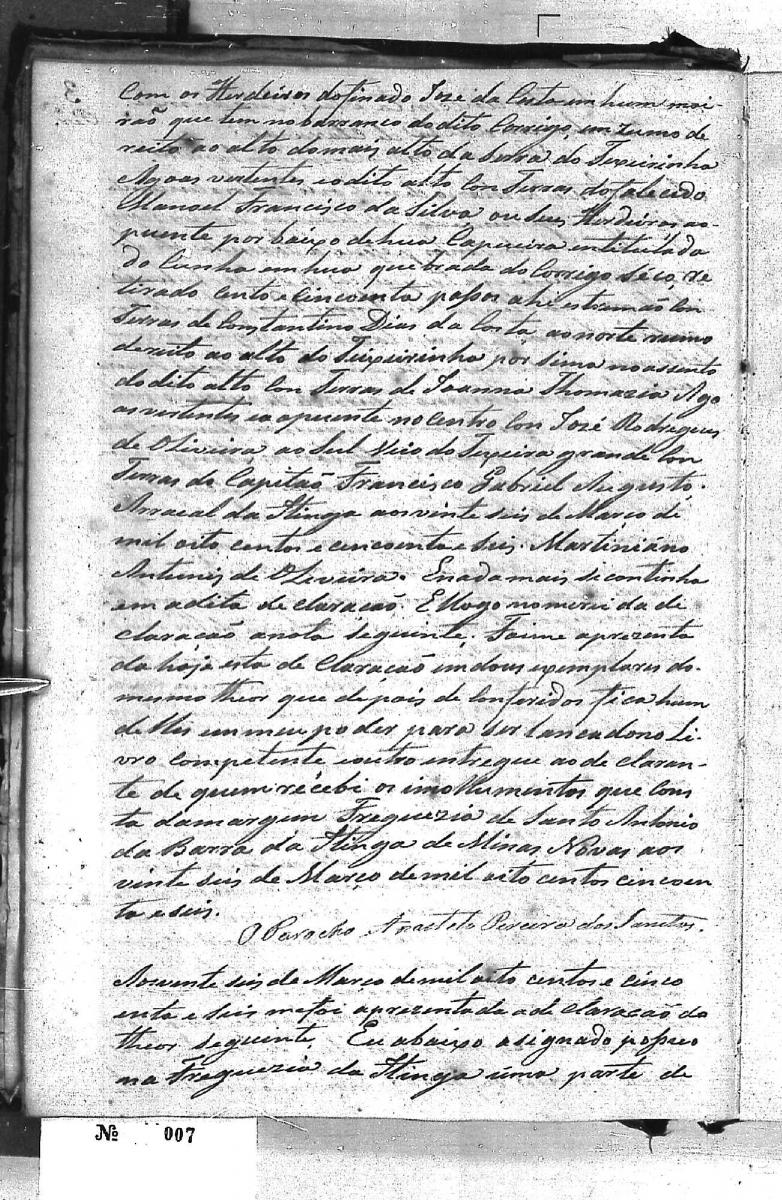 Com os Herdeiros do finado José da Costa em hum moi-
rão que tem no barranco do dito Corrigo, em rumo de
reito ao alto do mais alto da Serra do Teixeirinha
Agoas vertentes e o dito alto con Terras do falecido
Manoel Francisco da Silva ou seus Herdeiros, ao
puente por baixo de hua Capueira entitulada
do Cunha em hua quebrada do Corrigo séco, re
tirado cento e cincoenta passos ahi estremão con
Terras de Constantino Dias da Costa ao norte rumo
dereito ao alto do Teixeirinha por sima no assento
do dito alto con Terras de Joanna Thomazia Ago
as vertentes e ao puente no centro con José Rodrigues
de Oliveira ao Sul Veio do Texeira grande con
Terras do Capitão Francisco Gabriel Augusto.
Arraeal da Itinga aos vinte seis de Março de
mil oito centos e cencoenta e seis. Martiniano
Antunes de Oliveira. E nada mais se continha
em a dita declaração. E llogo no mesmo dia de
claração a nota seguinte. Foi me aprezenta
da hoje esta declaração em dous exemplares do
mesmo theor que depois de conferidos fica hum
delles em meu poder para ser lançado no Li-
vro competente e outro entregue ao declaran-
te de quem recebi os imollumentos que cons
ta da margem Freguezia de Santo Antonio
da Barra da Itinga de Minas Novas aos
vinte seis de Março de mil oito centos cincoen
ta e seis.
O Parocho Pereira dos Santos.
Aos vente seis de Março de mil oito centos e cinco
enta e seis me foi aprezentada a declaração do
theor seguinte. Eu abaixo asignado possuo
na Freguezia da Itinga uma parte de
Nº 007